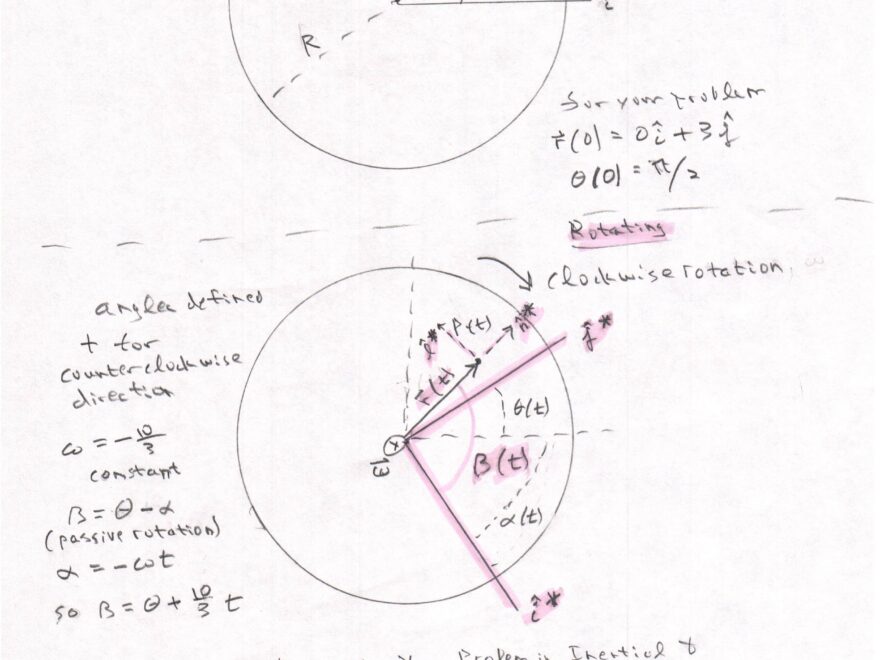 R
î
for your problem
r⃗(0) = 0î + 3ĵ
θ(0) = π/2
Rotating
clockwise rotation
angles defined
+ for
counterclockwise
direction
ω = -10/3
constant
β = θ - α
(passive rotation)
α = -ωt
so β = θ + 10/3 t
l̂*
P(t)
n̂*
ĵ*
r⃗(t)
θ(t)
ω⃗
β(t)
α(t)
î*
Problem in Inertial